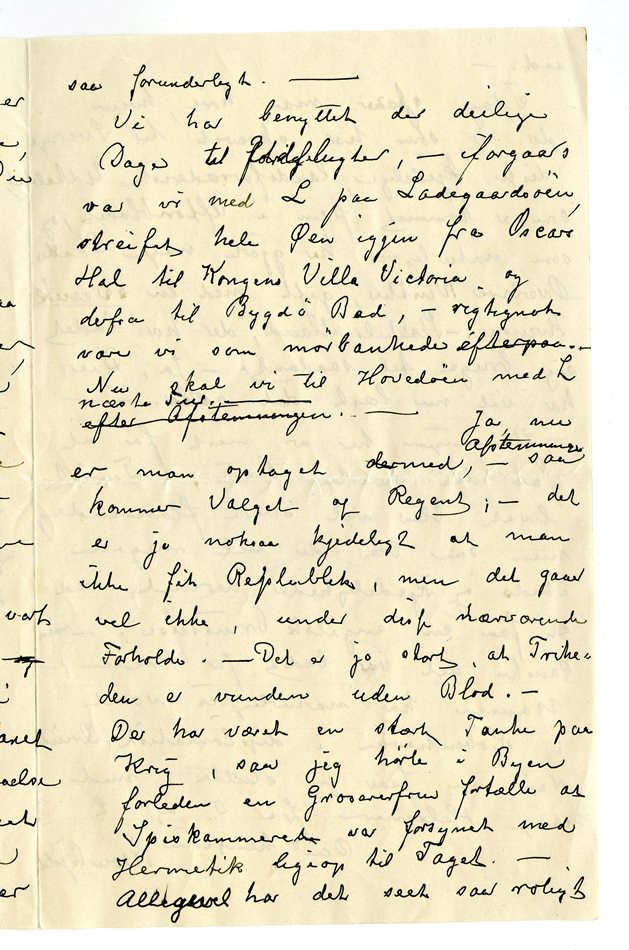 saa forunderligt. —
Vi har benyttet der deilige
Dage til , — Forgaars
var vi med L paa Ladegaardsöen,
streifet hele Øen iggjen fra Oscars
Hal til Kongens Villa Victoria og
derfra til Bygdö Bad, — rigtignok
vare vi som mörbankede efterpaa. —
Nu skal vi til Hovedöen med L
næste Tur. —
efter Afstemningen. — Ja, nu
Afstemninge
er man optaget dermed, — saa
kommer Valget af Regent; — det
er jo noksaa kjedeligt at man
ikke fik Replublik, men det gaar
vel ikke, under disse nærværende
Forholde. — Det er jo stort, at Frihe=
den er vunden uden Blod. —
Der har været en stærk Tanke paa
Krig, saa jeg hörte i Byen
forleden en Grosererfrue fortælle at
Spiskammeret var forsynet med
Hermetik ligeop til Taget. —
Alligevel har det seet saa roligt
er
e,
Die
aa
er
vort
i
aelse
er